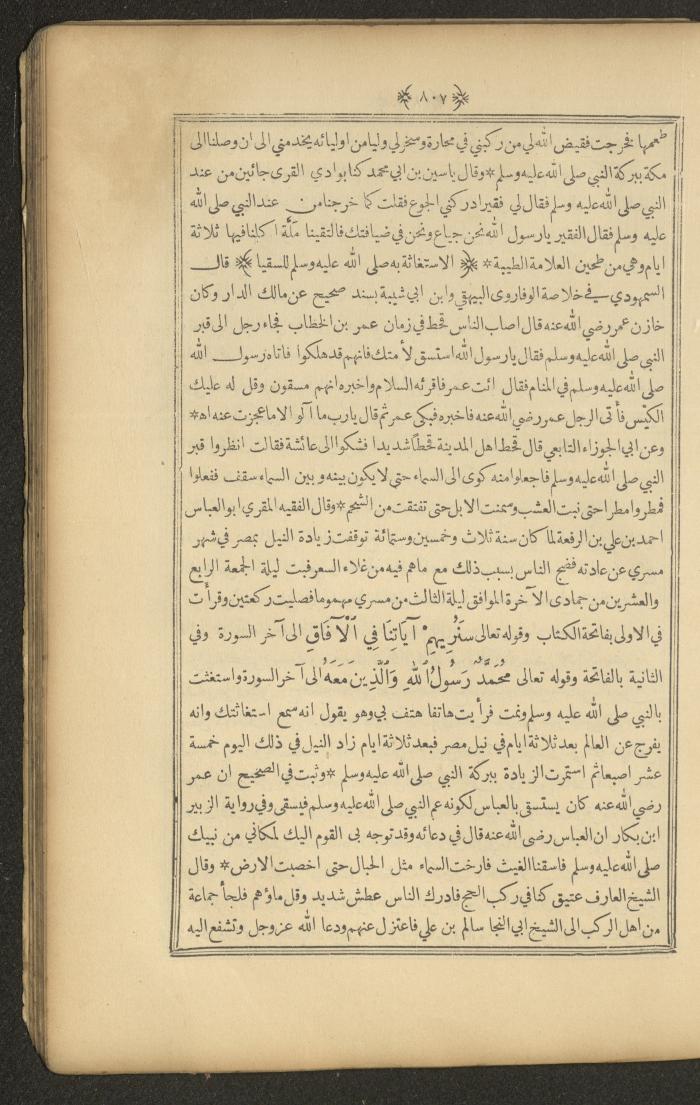 ﴿ ٨٠٧ ﴾
طعمها فخرجت فقيض الله لي من ركبني في محارة وسخر لي وليا من اوليائه يخدمني الى ان وصلنا الى
مكة ببركة النبي صلى الله عليه وسلم * وقال ياسين بن ابي محمد كنا بوادي القرى جائين من عند
النبي صلى الله عليه وسلم فقال لي فقير ادركني الجوع فقلت كما خرجنا من عند النبي صلى الله
عليه وسلم فقال الفقير يا رسول الله نحن جياع ونحن في ضيافتك فالتقينا مَلَّة اكلنا فيها ثلاثة
ايام وهي من طحين العلامة الطيبة * ﴿ الاستغاثة به صلى الله عليه وسلم للسقيا ﴾ قال
السمهودي في خلاصة الوفا روى البيهقي وابن ابي شيبة بسند صحيح عن مالك الدار وكان
خازن عمر رضي الله عنه قال اصاب الناس قحط في زمان عمر بن الخطاب فجاء رجل الى قبر
النبي صلى الله عليه وسلم فقال يا رسول الله استسق لأمتك فانهم قد هلكوا فاتاه رسول الله
صلى الله عليه وسلم في المنام فقال ائت عمر فاقرئه السلام واخبره انهم مسقون وقل له عليك
الكيّس فأتى الرجل عمر رضي الله عنه فاخبره فبكى عمر ثم قال يا رب ما آلو الا ما عجزت عنه اه *
وعن ابي الجوزاء التابعي قال قحط اهل المدينة قحطاً شديدا فشكوا الى عائشة فقالت انظروا قبر
النبي صلى الله عليه وسلم فاجعلوا منه كوى الى السماء حتى لا يكون بينه وبين السماء سقف ففعلوا
فمطروا مطرا حتى نبت العشب وسمنت الابل حتى تفتقت من الشحم * وقال الفقيه المقري ابو العباس
احمد بن علي بن الرفعة لما كان سنة ثلاث وخمسين وستمائة توقفت زيادة النيل بمصر في شهر
مسري عن عادته فضج الناس بسبب ذلك مع ما هم فيه من غلاء السعر فبت ليلة الجمعة الرابع
والعشرين من جمادى الآخرة الموافق ليلة الثالث من مسري مهموما فصليت ركعتين وقرأت
في الاولى بفاتحة الكتاب وقوله تعالى سَنُرِيهِمْ آيَاتِنَا فِي ٱلْآفَاقِ الى آخر السورة وفي
الثانية بالفاتحة وقوله تعالى مُحَمَّدٌ رَسُولُ ٱللهِ وَٱلَّذِينَ مَعَهُ الى آخر السورة واستغثت
بالنبي صلى الله عليه وسلم ونمت فرأيت هاتفا هتف بي وهو يقول انه سمع استغاثتك وانه
يفرج عن العالم بعد ثلاثة ايام في نيل مصر فبعد ثلاثة ايام زاد النيل في ذلك اليوم خمسة
عشر اصبعا ثم استمرت الزيادة ببركة النبي صلى الله عليه وسلم * وثبت في الصحيح ان عمر
رضي الله عنه كان يستسقي بالعباس لكونه عم النبي صلى الله عليه وسلم فيسقى وفي رواية الزبير
ابن بكار ان العباس رضي الله عنه قال في دعائه وقد توجه بى القوم اليك لمكاني من نبيك
صلى الله عليه وسلم فاسقنا الغيث فارخت السماء مثل الحبال حتى اخصبت الارض * وقال
الشيخ العارف عتيق كنا في ركب الحج فادرك الناس عطش شديد وقل ماؤهم فلجأ جماعة
من اهل الركب الى الشيخ ابي النجا سالم بن علي فاعتزل عنهم ودعا الله عز وجل وتشفع اليه